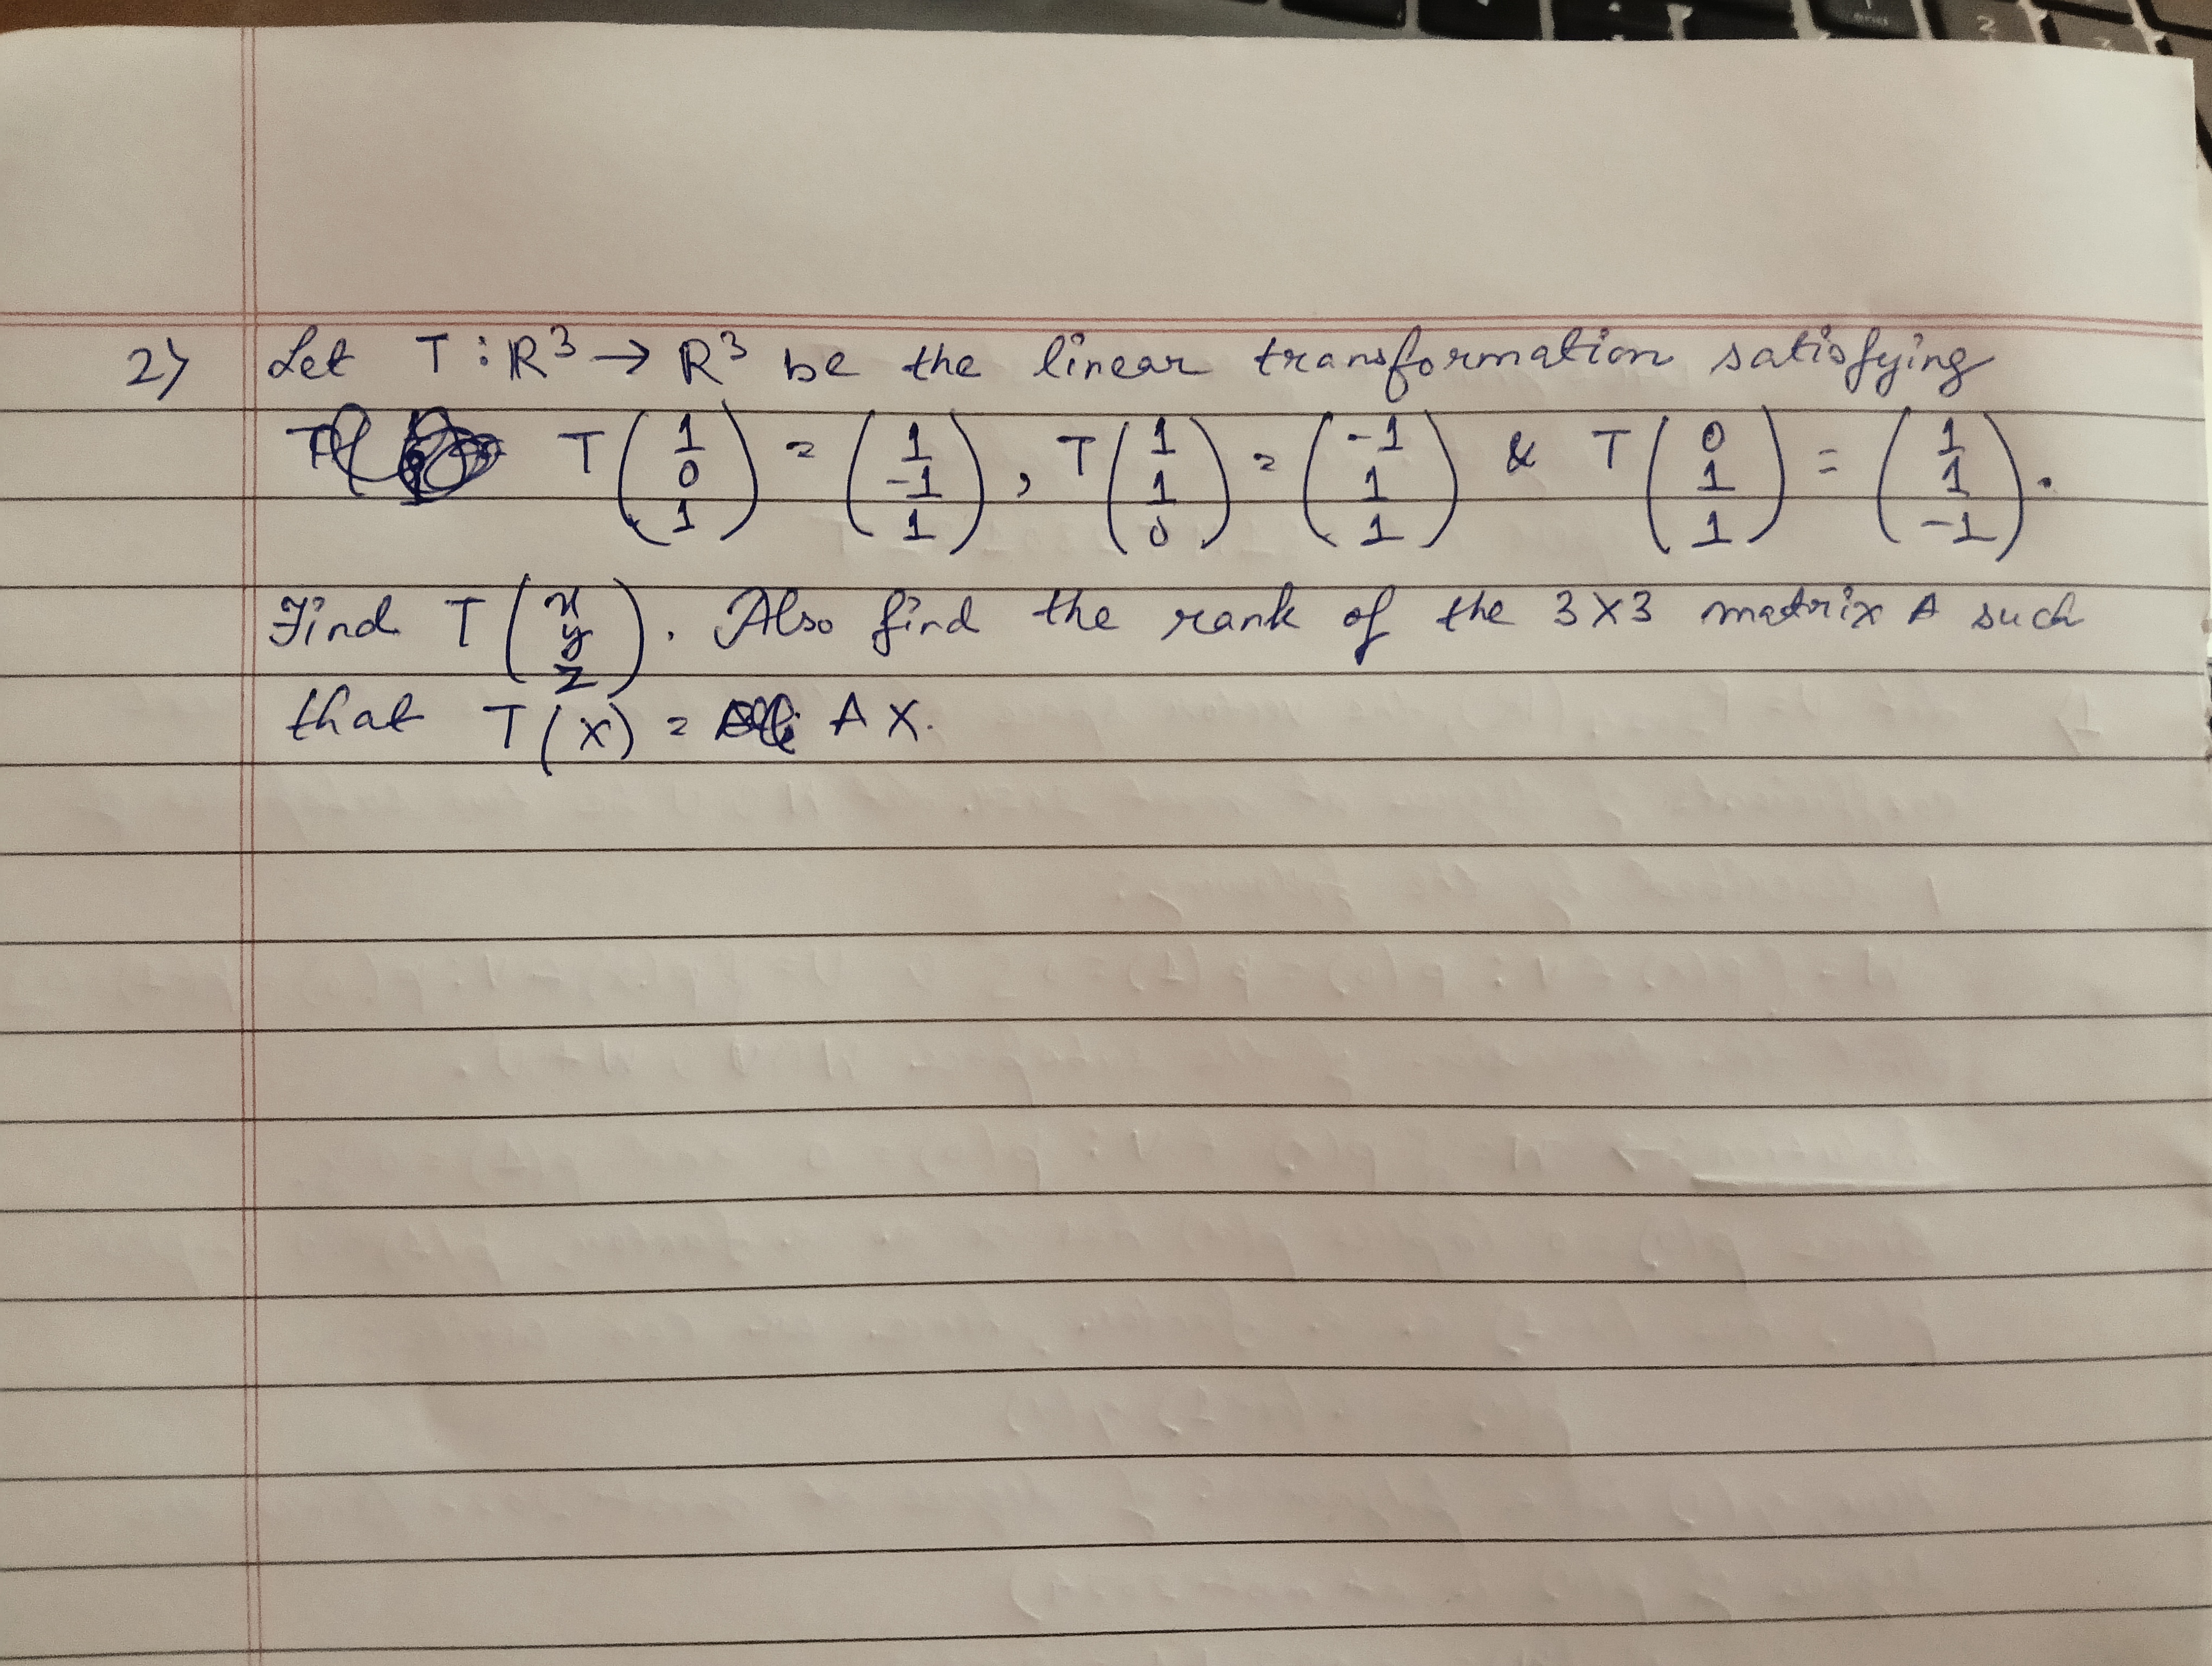 2) Let T : R³ → R³ be the linear transformation satisfying
T (1 0 1) = (1 -1 1), T (1 1 0) = (-1 1 1) & T (0 1 1) = (1 1 -1).
Find T (x y z). Also find the rank of the 3X3 matrix A such
that T(X) = AX.